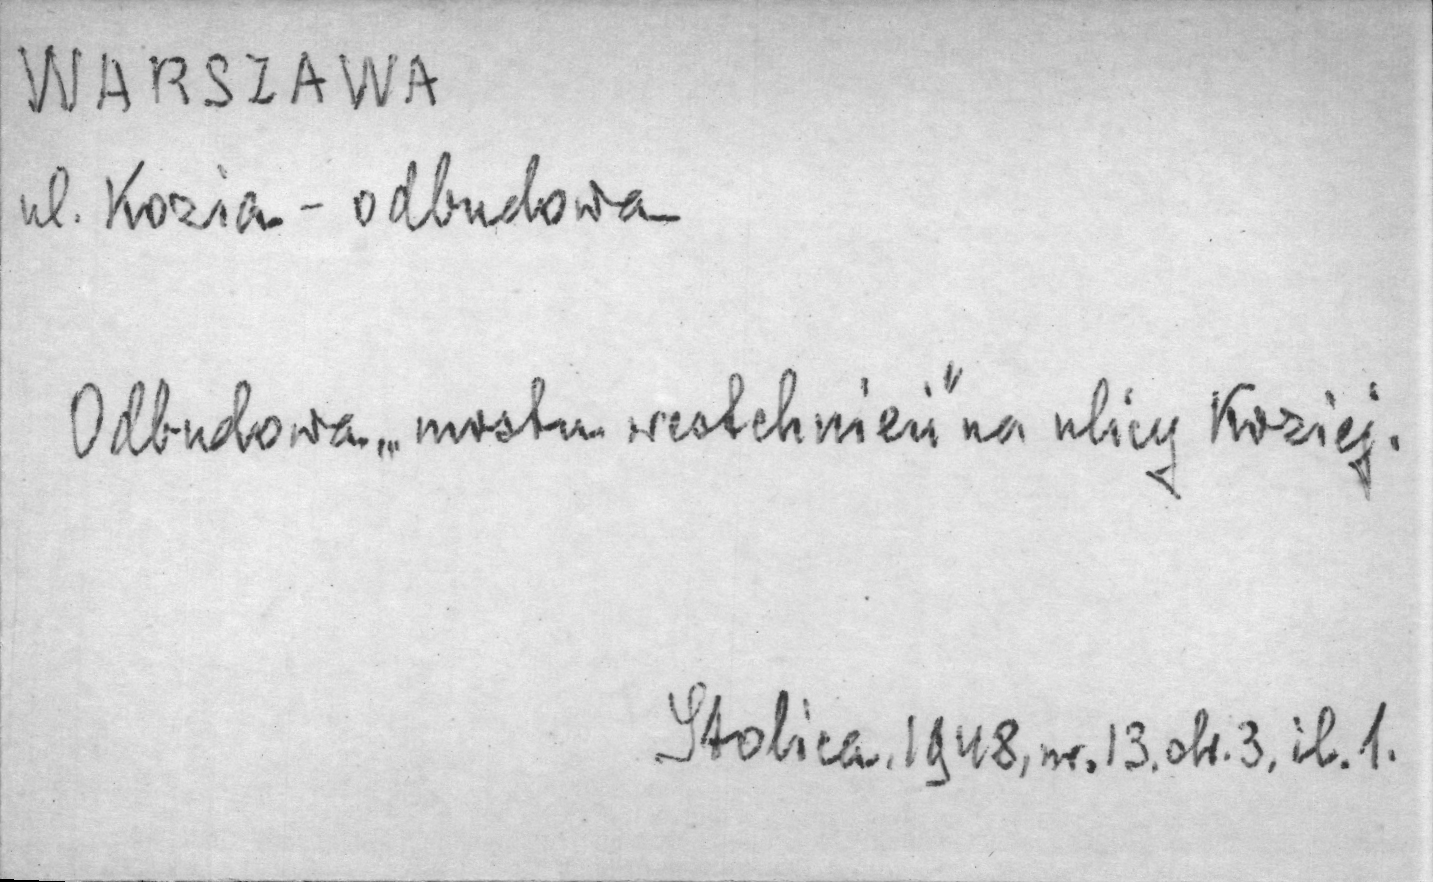 WARSZAWA
ul. Kozia - odbudowa
Odbudowa „mostu westchnień" na ulicy Koziej.
Stolica. 1948, nr. 13. str. 3, il. 1.